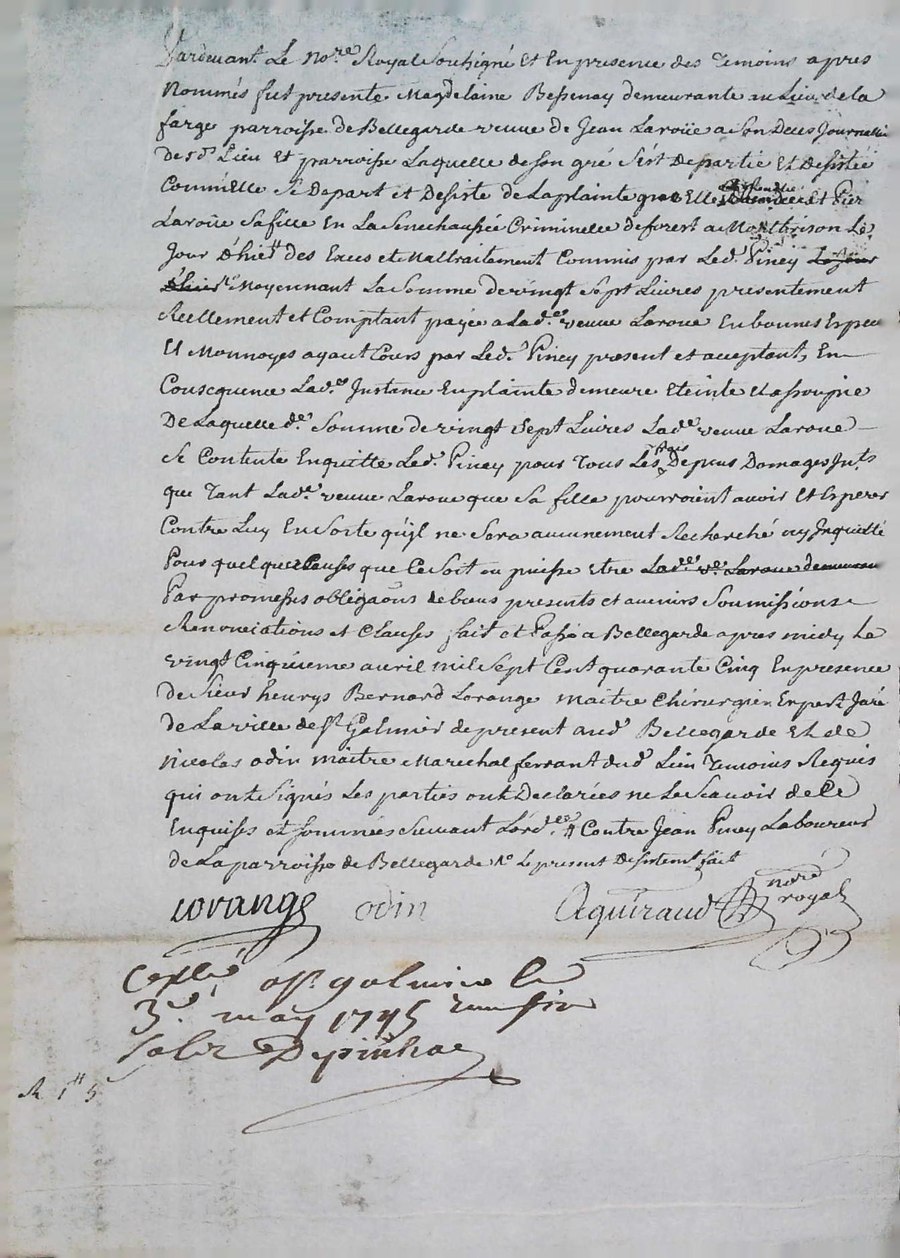 Pardevant Le No.re Royal Souhsigné Et En presence des Temoins apres
Nommés fut presente Magdelaine Bessenay demeurante au Lieu de la
farge parroisse de Bellegarde veuve de Jean Laroüe a Son Deces Journallier
de sd. Lieu Et parroisse Laquelle de Son gré S'est Departie Et Desistée
Comm'Elle Se Depart et Desiste de La plainte que Elle Et
Laroüe Sa fille En La Senechaussée Criminelle de forest a Montbrison Le
Jour d'hier # des Exces et Maltraitement Commis par Led. Piney Le Jour
d'hier Moyennant La Somme de vingt Sept Livres presentement
Reellement et Comptant payée a Lad.e veuve Laroue En bonnes Espece
Et Monnoyes ayant Cours par Led. Piney present et acceptant, En
Consequence Lad.e Instance En plainte demeure Eteinte Et assoupie
De Laquelle d.e Somme de vingt Sept Livres Lad.e veuve Laroue
Se Contente Enquitte Led. Piney pour Tous Les Depens Domages Int.ts
que Tant Lad.e veuve Laroue que Sa fille pourroient avoir Et Esperer
Contre Luy En Sorte qu'il ne Sera aucunement Recherché ny Inquietté
Pour quelques Causes que Ce Soit ou puisse Etre Lad.e v.e Laroue demeurant
Par promesses obligaons de biens presents et avenirs Soumissions
Renonciations et Clauses fait et Passé a Bellegarde apres midy Le
vingt Cinquieme avril mil Sept Cent quarante Cinq En presence
de Sieur henrys Bernard Lorange maitre Chirurgien Expert Juré
de La ville de St. Galmier de present aud. Bellegarde Et de
Nicolas odin maitre Marechal ferrant dud. Lieu Temoins Requis
qui ont Signés Les parties ont Declarées ne Le Scavoir de Ce
Enquises et Sommées Suivant L'ord.ce # Contre Jean Piney Laboureur
de La parroisse de Bellegarde Le present Desistemt fait
Lorange odin Aguiraud nore royal
Collé a St. galmier le
3e. may 1745
Depinhac
R 1# 5